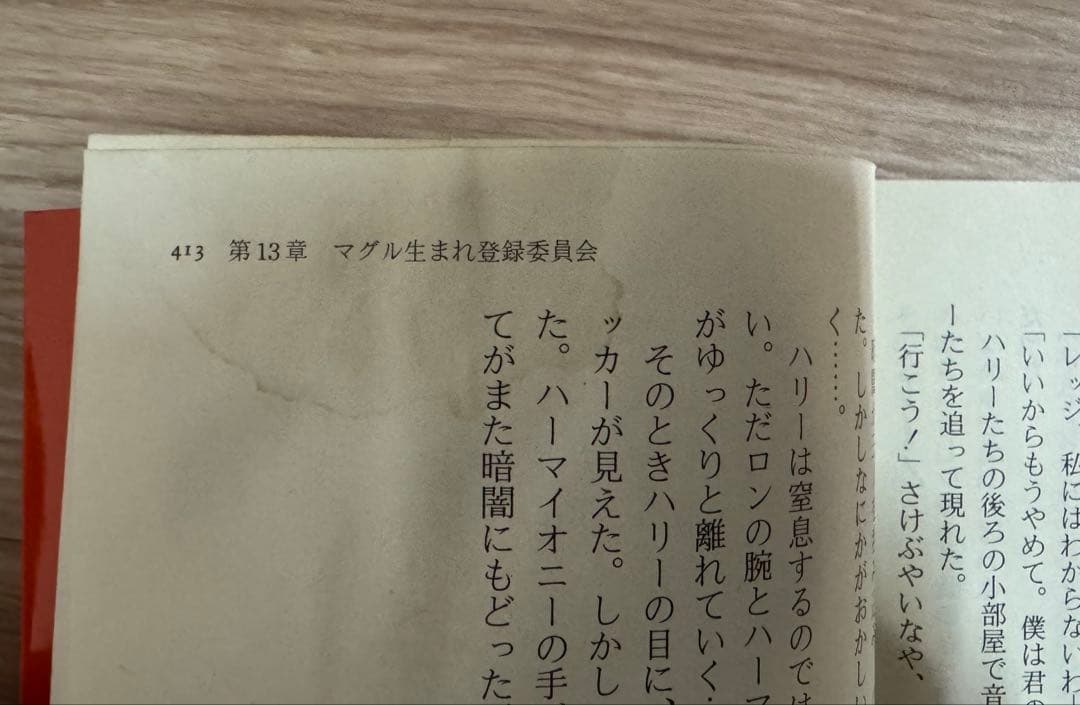 413 第13章 マグル生まれ登録委員会
「レッジ、私にはわからないわ
「いいからもうやめて。僕は君の
ハリーたちの後ろの小部屋で音
ーたちを追って現れた。
「行こう!」さけぶやいなや、
た。しかしなにかがおかしい
く……。
ハリーは窒息するのでは
い。ただロンの腕とハーマ
がゆっくりと離れていく
そのときハリーの目に、
ッカーが見えた。しかし
た。ハーマイオニーの手、
てがまた暗闇にもどった